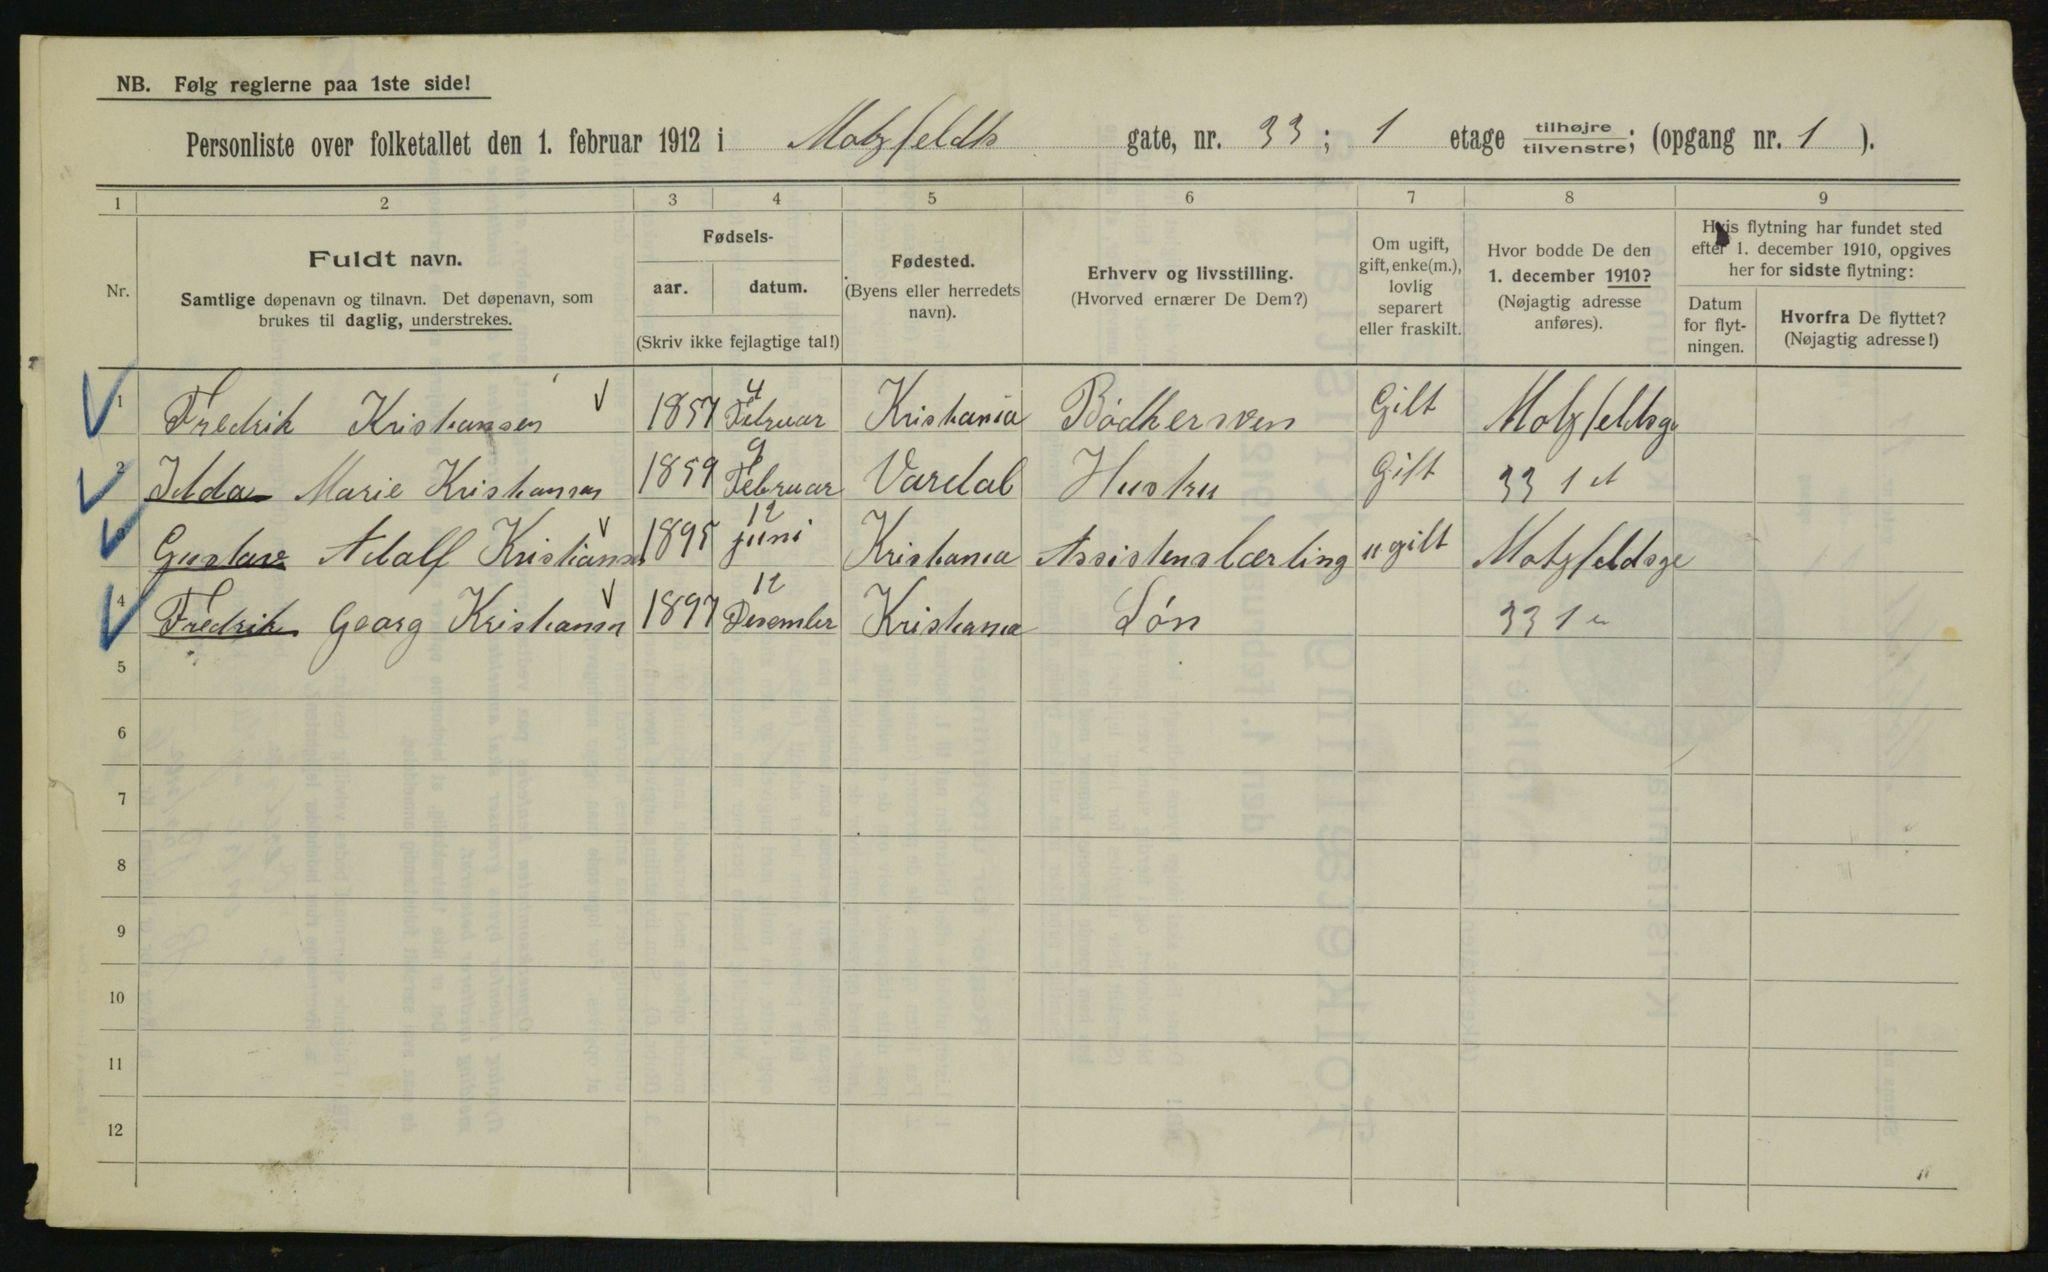 NB. Følg reglerne paa 1ste side!
Personliste over folketallet den 1. februar 1912 i Motzfeldts gate, nr. 33; 1 etage tilhøjre tilvenstre; (opgang nr. 1).
1 2 3 4 5 6 7 8 9
Nr.
Fuldt navn.
Samtlige døpenavn og tilnavn. Det døpenavn, som
brukes til daglig, understrekes.
Fødsels-
aar. datum.
(Skriv ikke fejlagtige tal!)
Fødested.
(Byens eller herredets
navn).
Erhverv og livsstilling.
(Hvorved ernærer De Dem?)
Om ugift,
gift, enke(m.),
lovlig
separert
eller fraskilt.
Hvor bodde De den
1. december 1910?
(Nøjagtig adresse
anføres).
Hvis flytning har fundet sted
efter 1. december 1910, opgives
her for sidste flytning:
Datum
for flyt-
ningen.
Hvorfra De flyttet?
(Nøjagtig adresse!)
1 Fredrik Kristiansen 1857 4 Februar Kristiania Bødkersven Gift Motzfeldsge
2 Marie Kristiansen 1859 9 Februar Vardal Hustru Gift 33 1 et
3 Gustav Adolf Kristiansen 1895 12 juni Kristiania Assistenslærling ugift Motzfeldsge
4 Fredrik Georg Kristiansen 1897 12 Desember Kristiania Søn 33 1
5
6
7
8
9
10
11
12